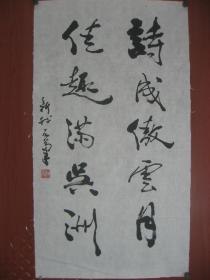 詩成傲雲月
佳趣滿吳洲